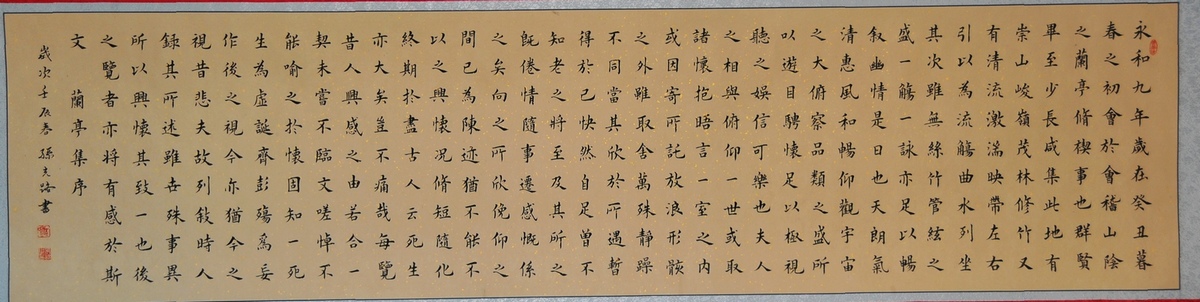 永和九年歲在癸丑暮
春之初會於會稽山陰
之蘭亭脩禊事也群賢
畢至少長咸集此地有
崇山峻嶺茂林修竹又
有清流激湍映帶左右
引以為流觴曲水列坐
其次雖無絲竹管絃之
盛一觴一詠亦足以暢
叙幽情是日也天朗氣
清惠風和暢仰觀宇宙
之大俯察品類之盛所
以遊目騁懷足以極視
聽之娛信可樂也夫人
之相與俯仰一世或取
諸懷抱晤言一室之內
或因寄所託放浪形骸
之外雖取舍萬殊靜躁
不同當其欣於所遇暫
得於己快然自足曾不
知老之將至及其所之
既倦情隨事遷感慨係
之矣向之所欣俛仰之
間已為陳迹猶不能不
以之興懷況脩短隨化
終期於盡古人云死生
亦大矣豈不痛哉每覽
昔人興感之由若合一
契未嘗不臨文嗟悼不
能喻之於懷固知一死
生為虛誕齊彭殤為妄
作後之視今亦猶今之
視昔悲夫故列敘時人
錄其所述雖世殊事異
所以興懷其致一也後
之覽者亦將有感於斯
文 蘭亭集序
歲次壬辰春 孫克路書